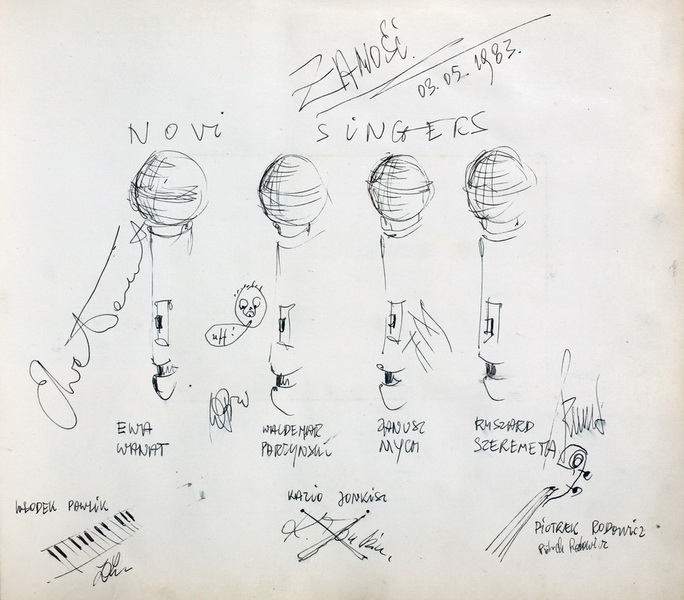 ZAMOŚĆ
03.05.1983.
NOVI SINGERS
Ewa Wanat
uff!
EWA WANAT
WALDEMAR PARZYŃSKI
JANUSZ MYCH
RYSZARD SZEREMETA
WŁODEK PAWLIK
KAZIO JONKISZ
K. Jonkisz
PIOTREK RODOWICZ
Piotrek Rodowicz